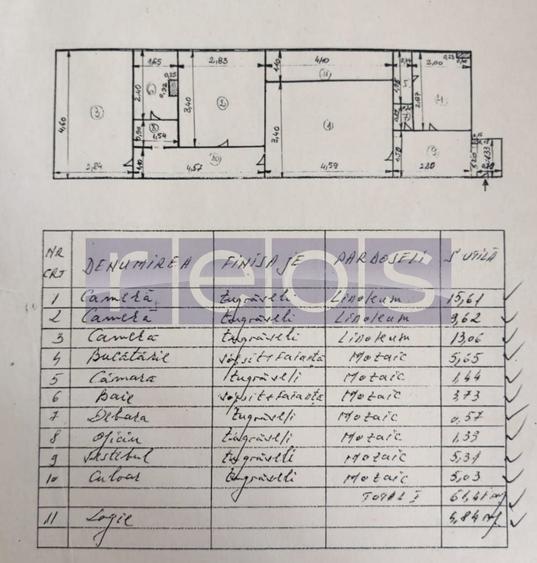 1,65
0,25
2,83
4,10
2,00
1,10
2,40
0,72
6
3
2
3,40
11
4
2,87
4,60
8
1,54
1
3,40
7
9
2,84
4,57
10
4,59
2,20
NR CRT DENUMIREA FINISAJE PARDOSELI S UTILĂ
rebs
1 Cameră Zugrăveli Linoleum 15,61
2 Cameră Zugrăveli Linoleum 9,62
3 Camera Zugrăveli Linoleum 13,06
4 Bucătărie vopsit+faianță Mozaic 5,65
5 Cămara Zugrăveli Mozaic 1,44
6 Baie vopsit+faianță Mozaic 3,73
7 Debara Zugrăveli Mozaic 0,57
8 Oficiu Zugrăveli Mozaic 1,33
9 Vestibul Zugrăveli Mozaic 5,31
10 Culoar Zugrăveli Mozaic 5,03
TOTAL I 61,41 mp
11 Logie 4,84 mp